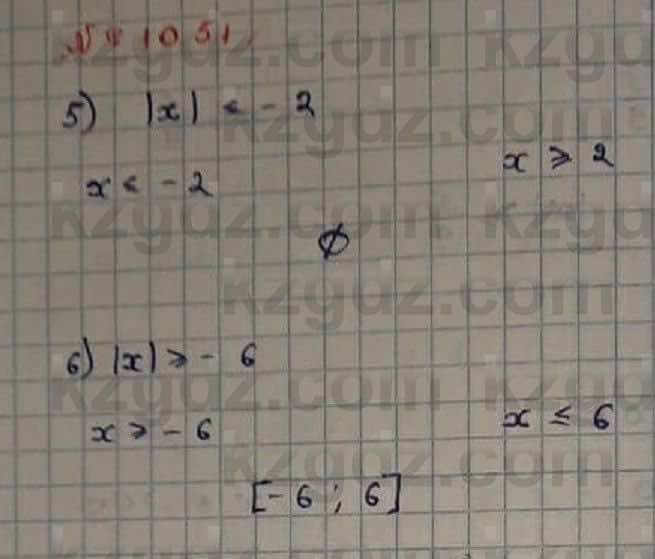 № 1051
5) |x| < - 2
x < - 2 x ⩾ 2
∅
6) |x| ⩾ - 6
x ⩾ - 6 x ≤ 6
[- 6 ; 6]
kzgdz.com